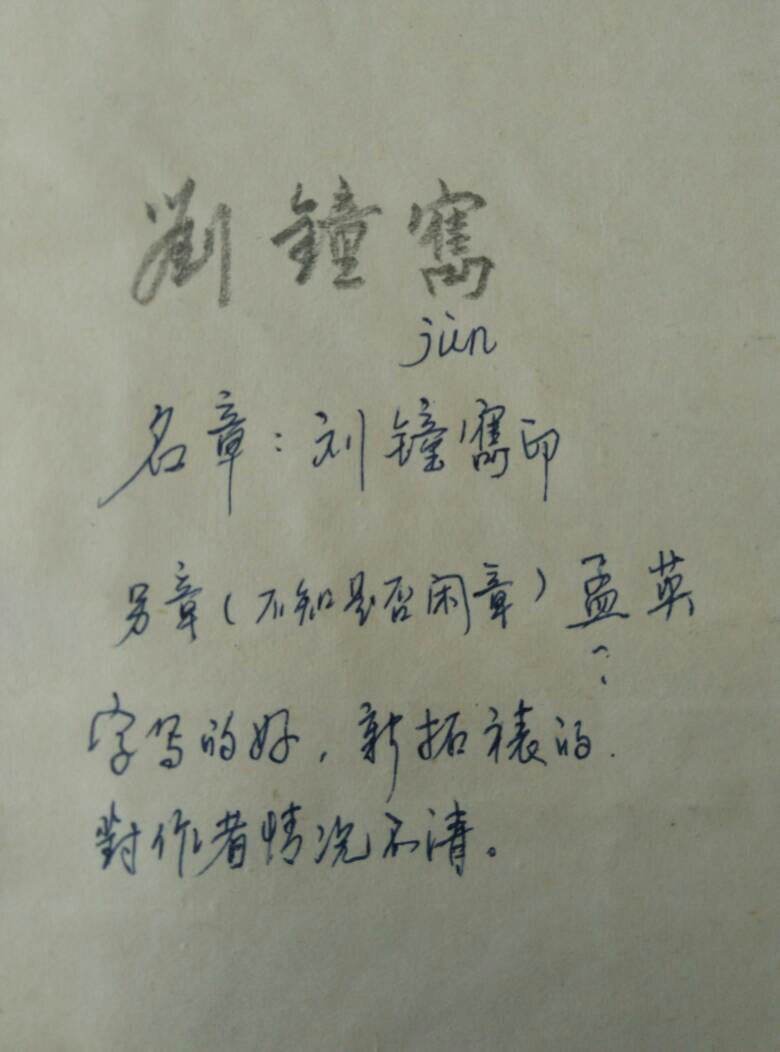 劉鐘寯
jùn
名章：刘鐘寯印
另章（不知是否闲章）孟英
？
字写的好，新拓裱的.
對作者情况不清。